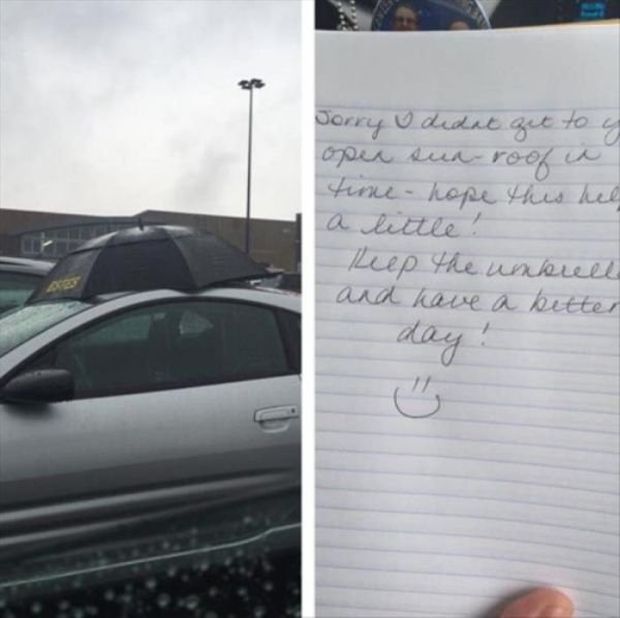 Sorry I didnt get to y
open sun-roof in
time - hope this hel
a little!
Keep the umbrell
and have a better
day!